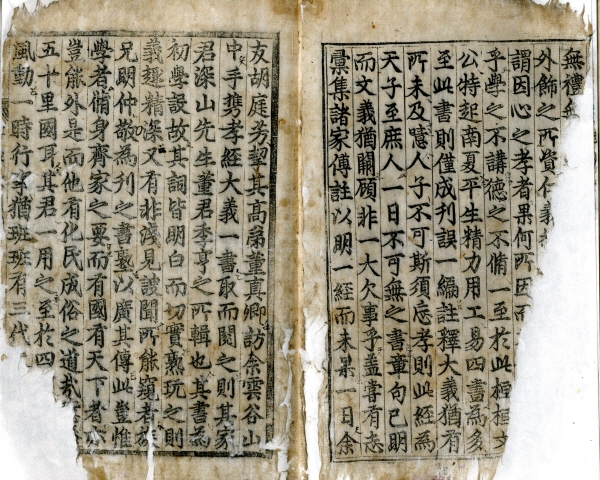 無禮無
外飾之所資仁義
謂因心之孝者果何所因而
乎學之不講德之不脩一至於此桓桓文
公特起南夏平生精力用工易四書為多
至此書則僅成刊誤一編註釋大義猶有
所未及噫人子不可斯須忘孝則此經為
天子至庶人一日不可無之書章句已明
而文義猶闕顧非一大欠事乎蓋嘗有志
彙集諸家傳註以明一經而未果一日余
友胡庭芳挈其高弟董真卿訪余雲谷山
中手擕孝經大義一書取而閱之則其家
君深山先生董君季亨之所輯也其書為
初學設故其詞皆明白而切實熟玩之則
義趣精深又有非淺見謏聞所能窺者族
兄明仲敬為刊之書塾以廣其傳此豈惟
學者脩身齊家之要而有國有天下者亦
豈能外是而他有化民成俗之道哉
五十里國耳其君一用之至於四
風動一時行事猶班班有三代